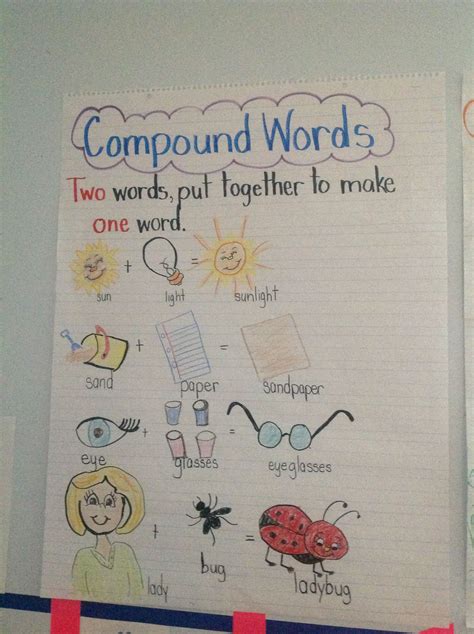 Compound Words
Two words, put together to make
one word.
sun + light = sunlight
sand + paper = sandpaper
eye + glasses = eyeglasses
lady + bug = ladybug